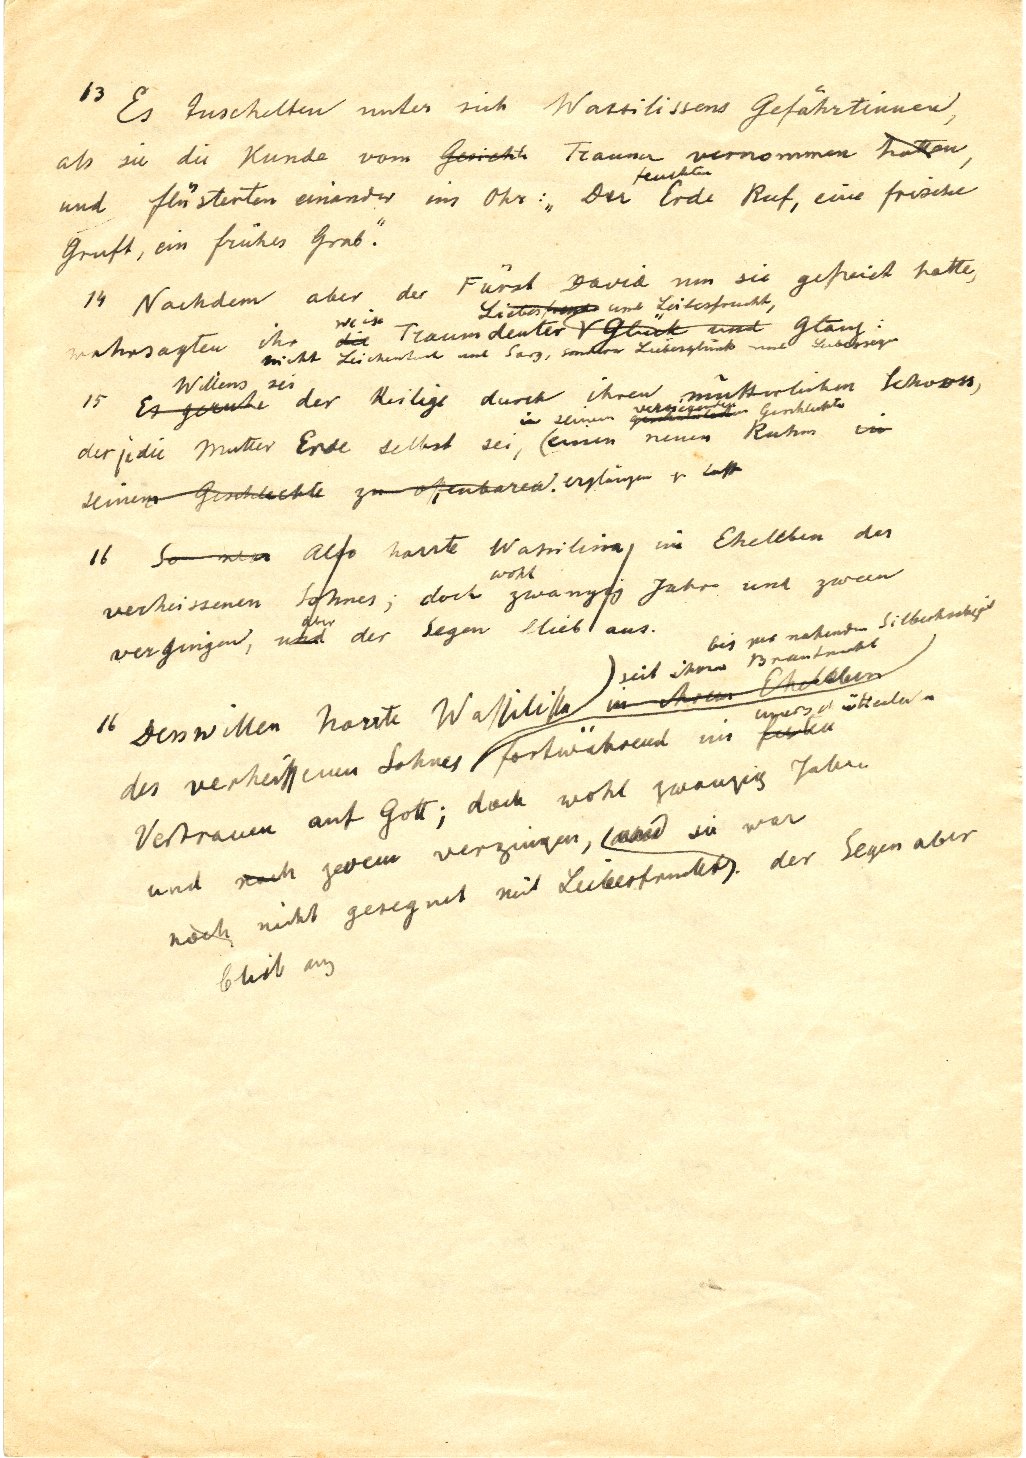 13 Es tuschelten unter sich Wassilissens Gefährtinnen,
als sie die Kunde vom Gesicht Traume vernommen hatten,
feuchten
und flüsterten einander ins Ohr: „Der Erde Ruf, eine frische
Gruft, ein frühes Grab".
14 Nachdem aber der Fürst David um sie gefreit hatte,
weise Liebesfreude und Leibesfrucht,
wahrsagten ihr die Traumdeuter Glück und Glanz:
nicht Leichentuch und Sarg, sondern Liebesglück und Liebessegen
Willens sei
15 Es geruhe der Heilige durch ihren mütterlichen Schooss,
in seinem Geschlechte
der je die Mutter Erde selbst sei, (einen neuen Ruhm in
seinem Geschlechte zu offenbaren. erglänzen zu lassen
16 So nun Also harrte Wassilissa im Eheleben des
wohl
verheissenen Sohnes; doch zwanzig Jahre und zween
aber
vergingen, und der Segen blieb aus.
bis zur nahenden Silberhochzeit
seit ihrer Brautnacht
16 Desswillen harrte Wassilissa in ihrem Eheleben
unerschütterlichen
des verheissenen Sohnes fortwährend im festen
Vertrauen auf Gott; doch wohl zwanzig Jahre
und noch zween vergingen, (und sie war
noch nicht gesegnet mit Leibesfrucht). der Segen aber
blieb aus